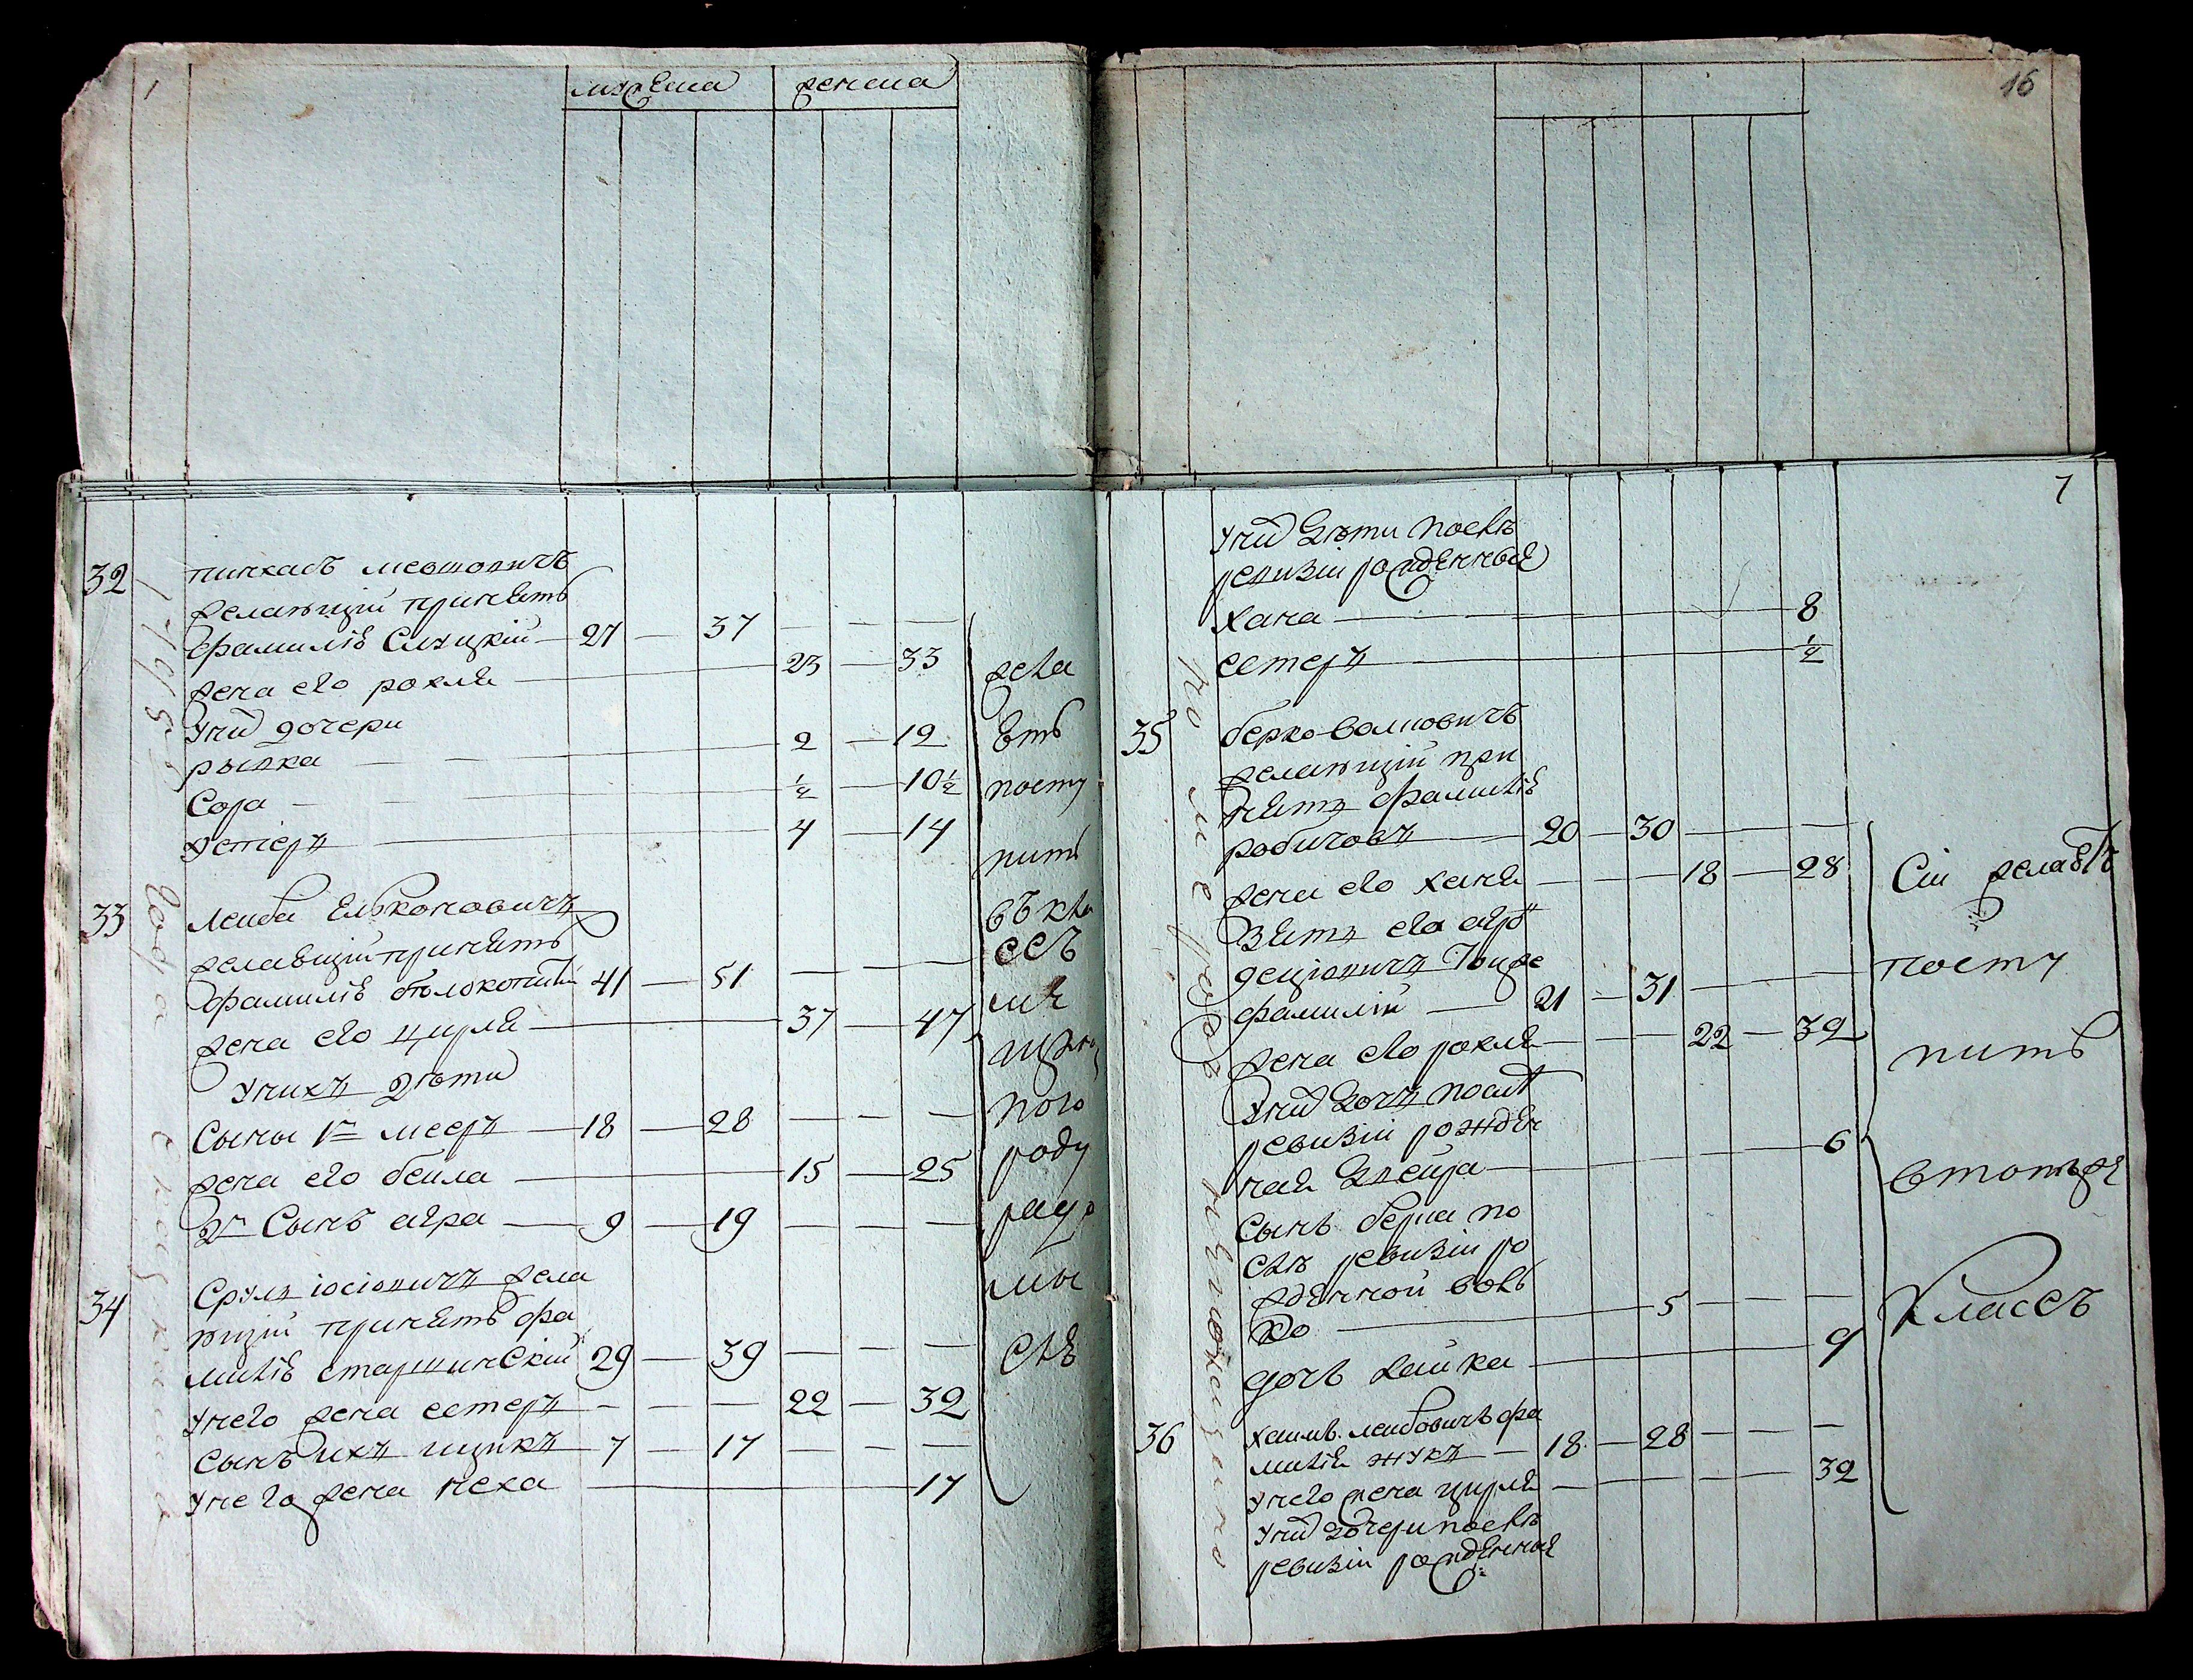 мужеска женска
16
7
32 пинхасъ мевшовичъ
желающій принять
фамилію Слуцкій — 27 — 37 — — —
жена его рохля — 23 — 33
У них дочери
рывка — — 2 — 12
Сора — — ½ — 10½
Устеръ — 4 — 14
33 Лейба Ельконовичъ
желающій принять
фамилію 41 — 51 — — —
жена его цирля — 37 — 47
У нихъ дѣти
Сыны 1й мееръ — 18 — 28 — — —
жена его бейла — 15 — 25
2й Сынъ агра — 9 — 19 — — —
34 Срулъ іосіовичъ жела
ющій принять фа
милію старшинскій 29 — 39 — — —
У него жена естеръ — — — 22 — 32
Сынъ ихъ ицыкъ — 7 — 17 — — —
У него жена неха — 17
1795 года
жела
ютъ
посту
пить
въ кла
ссъ
мѣ
щан
роду
ра
мы
слѣ
У них дѣти послѣ
ревизіи рожденные
Хана — 8
естеръ — ½
35 берко Волповичъ
желающій при
нять фамилію
рабиновъ — 20 — 30 — — —
жена его ханя — — — 18 — 28
Зять его
фамиліи — 21 — 31 — — —
жена его рохля — — — 22 — 32
У них дочь послѣ
ревизіи рожден
ная двейра — 6
Сынъ берки по
слѣ ревизіи ро
жденной вольв
ко — 5 — — —
дочь хайка — 9
36 Хаимъ лейбовичъ фа
милія жукъ — 18 — 28 — — —
У него жена цирля — 32
У них дочери послѣ
ревизіи рожденные
по не показано
Сіи желаютъ
посту
пить
въ тотъ же
Классъ